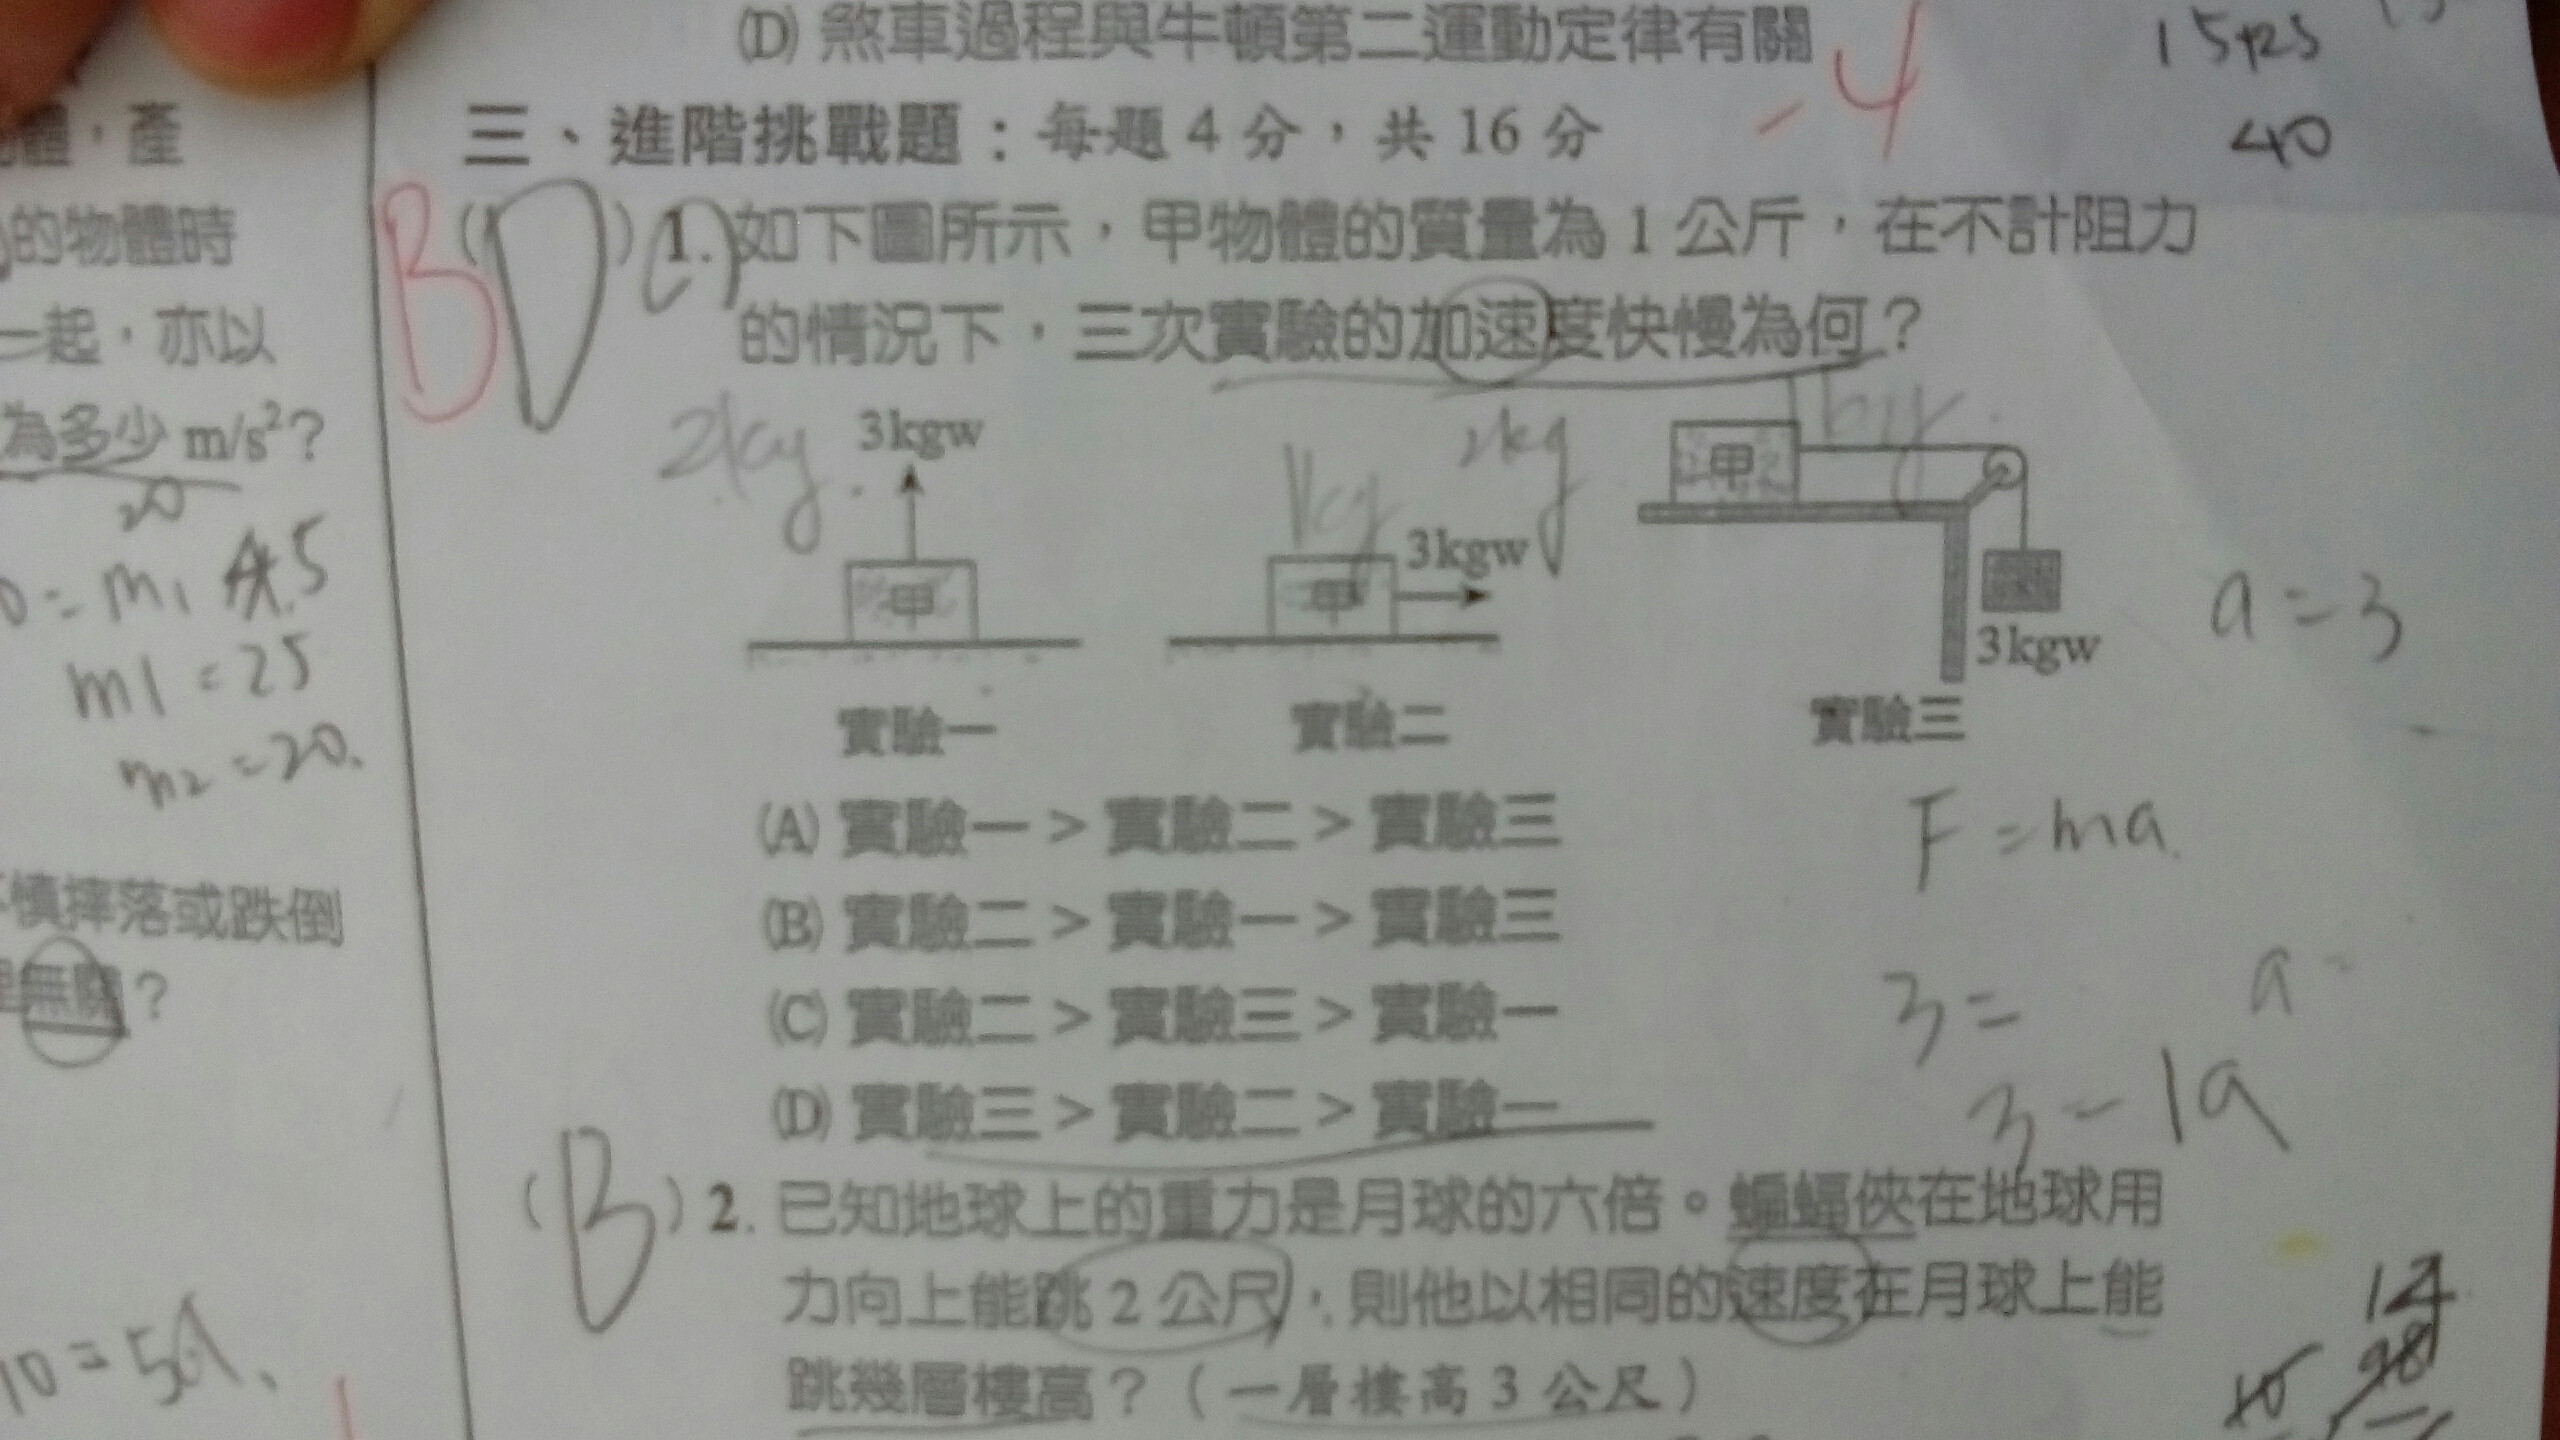 (D) 煞車過程與牛頓第二運動定律有關
-4
三、進階挑戰題：每題 4 分，共 16 分
B (D) 1. 如下圖所示，甲物體的質量為 1 公斤，在不計阻力
的情況下，三次實驗的加速度快慢為何？
2kg
3kgw
1kg
2kg
甲
甲
3kgw
甲
3kgw
a=3
實驗一
實驗二
實驗三
(A) 實驗一 > 實驗二 > 實驗三
(B) 實驗二 > 實驗一 > 實驗三
(C) 實驗二 > 實驗三 > 實驗一
(D) 實驗三 > 實驗二 > 實驗一
F=ma
3=
3=1a
(B) 2. 已知地球上的重力是月球的六倍。蝙蝠俠在地球用
力向上能跳 2 公尺，則他以相同的速度在月球上能
跳幾層樓高？（一層樓高 3 公尺）
，產
的物體時
一起，亦以
為多少 m/s²？
20
m1=25
m2=20.
慎摔落或跌倒
無關？
10=5a.
40
12